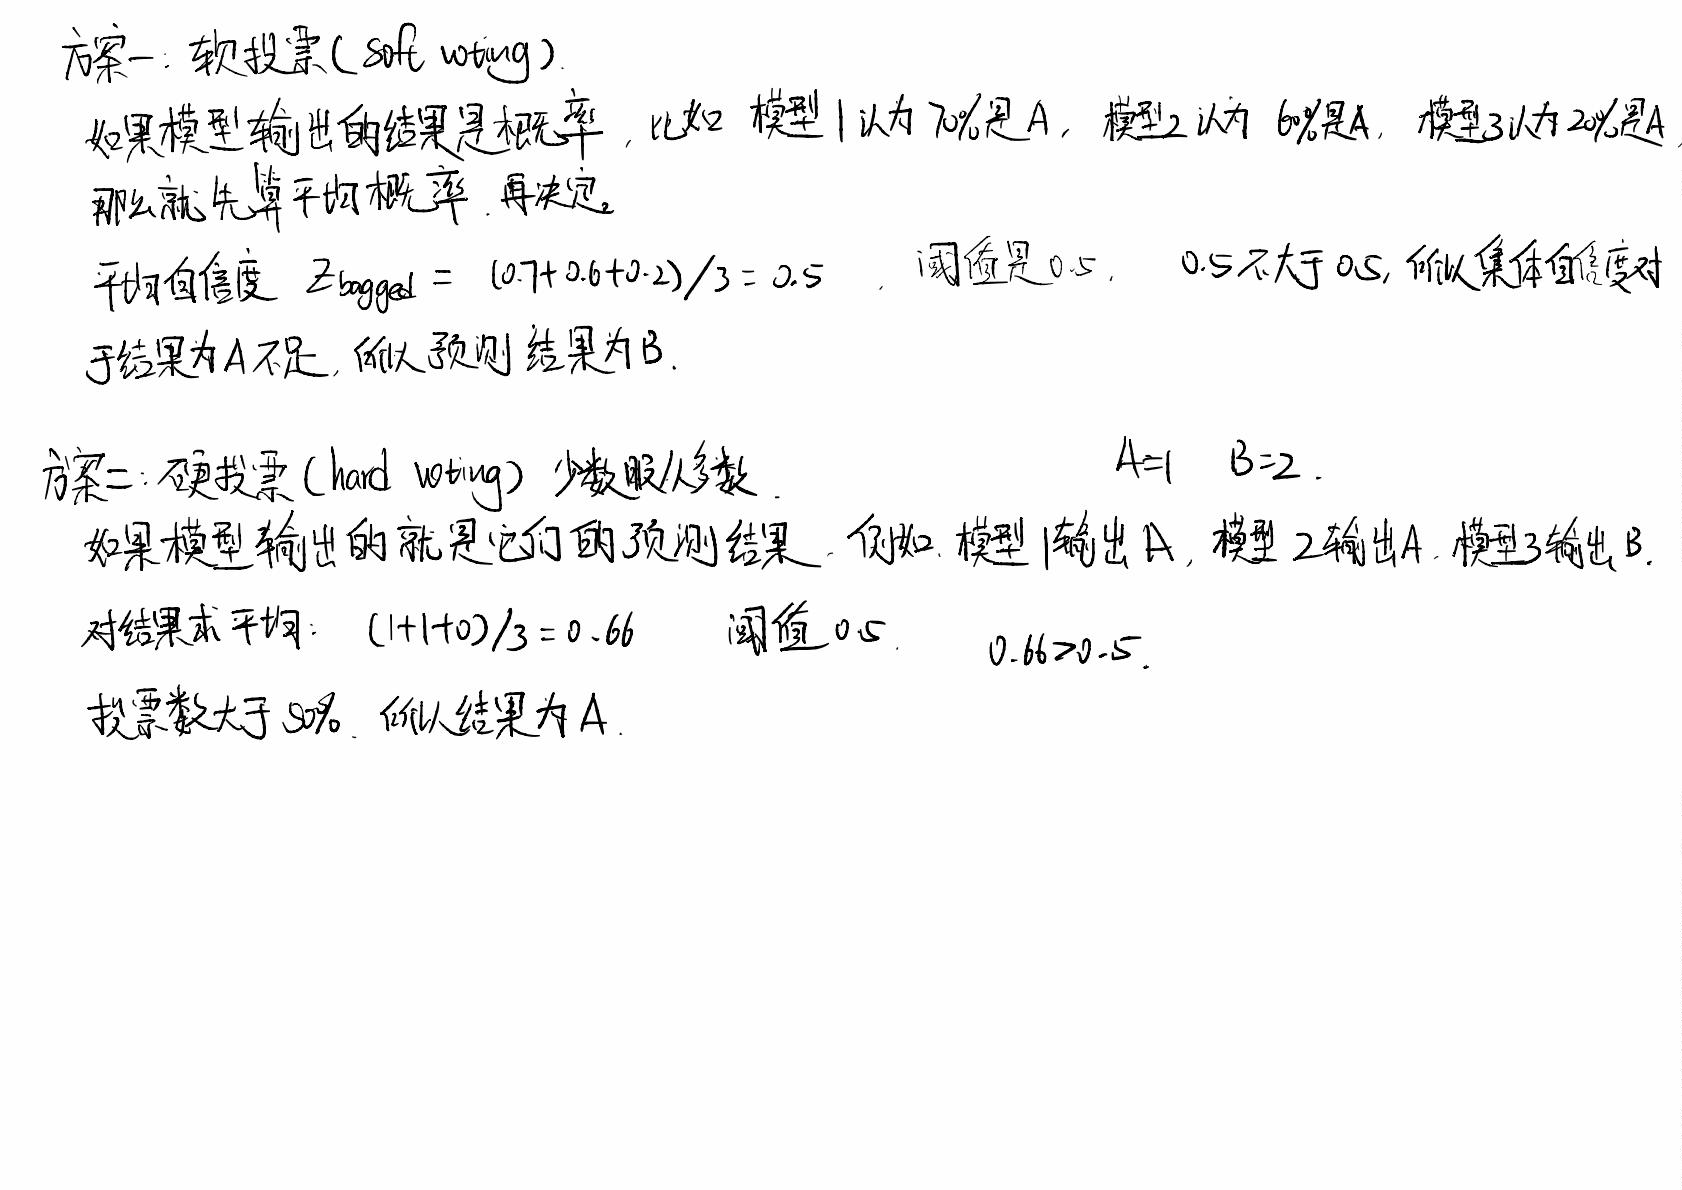 方案一：软投票(soft voting).
如果模型输出的结果是概率，比如 模型1认为70%是A，模型2认为 60%是A，模型3认为20%是A，
那么就先算平均概率，再决定。
平均自信度 Zbagged = (0.7+0.6+0.2)/3=0.5 ， 阈值是0.5， 0.5不大于0.5，所以集体自信度对
于结果为A不足，所以预测结果为B.
方案二：硬投票(hard voting) 少数服从多数. A=1 B=2.
如果模型输出的就是它们的预测结果，例如，模型1输出A，模型2输出A，模型3输出B.
对结果求平均： (1+1+0)/3=0.66 阈值 0.5. 0.66>0.5.
投票数大于50%，所以结果为A.